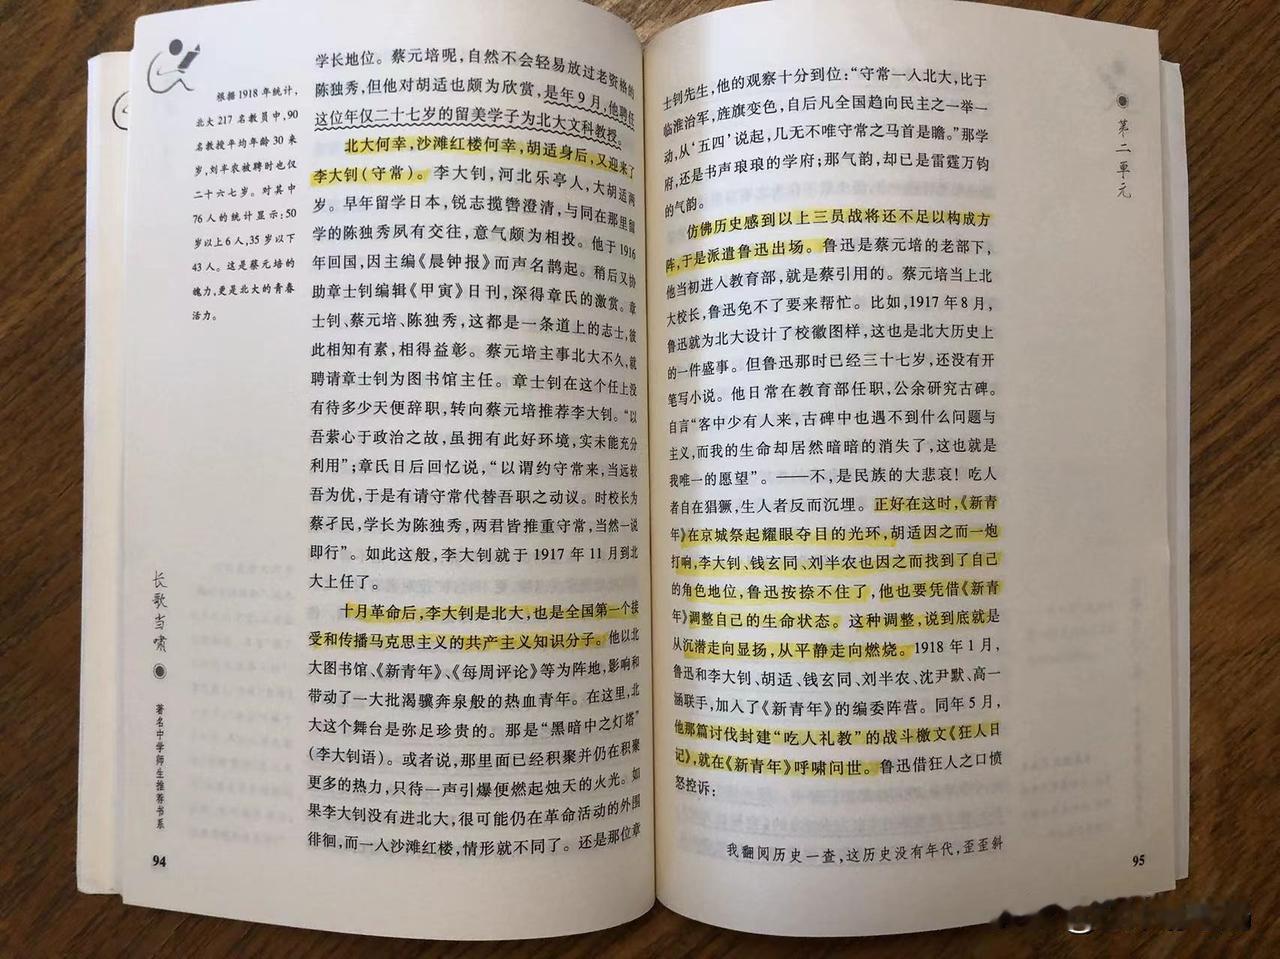 根据1918年统计，
北大217名教员中，90
名教授平均年龄30来
岁，刘半农被聘时也仅
二十六七岁。对其中
76人的统计显示：50
岁以上6人，35岁以下
43人。这是蔡元培的
魄力，更是北大的青春
活力。
学长地位。蔡元培呢，自然不会轻易放过老资格的
陈独秀，但他对胡适也颇为欣赏，是年9月，他聘任
这位年仅二十七岁的留美学子为北大文科教授。
北大何幸，沙滩红楼何幸，胡适身后，又迎来了
李大钊（守常）。李大钊，河北乐亭人，大胡适两
岁。早年留学日本，锐志揽辔澄清，与同在那里留
学的陈独秀夙有交往，意气颇为相投。他于1916
年回国，因主编《晨钟报》而声名鹊起。稍后又协
助章士钊编辑《甲寅》日刊，深得章氏的激赏。章
士钊、蔡元培、陈独秀，这都是一条道上的志士，彼
此相知有素，相得益彰。蔡元培主事北大不久，就
聘请章士钊为图书馆主任。章士钊在这个任上没
有待多少天便辞职，转向蔡元培推荐李大钊。“以
吾萦心于政治之故，虽拥有此好环境，实未能充分
利用”；章氏日后回忆说，“以谓约守常来，当远较
吾为优，于是有请守常代替吾职之动议。时校长为
蔡孑民，学长为陈独秀，两君皆推重守常，当然一说
即行”。如此这般，李大钊就于1917年11月到北
大上任了。
十月革命后，李大钊是北大，也是全国第一个接
受和传播马克思主义的共产主义知识分子。他以北
大图书馆、《新青年》、《每周评论》等为阵地，影响和
带动了一大批渴骥奔泉般的热血青年。在这里，北
大这个舞台是弥足珍贵的。那是“黑暗中之灯塔”
（李大钊语）。或者说，那里面已经积聚并仍在积聚
更多的热力，只待一声引爆便燃起烛天的火光。如
果李大钊没有进北大，很可能仍在革命活动的外围
徘徊，而一人沙滩红楼，情形就不同了。还是那位章
长歌当啸
著名中学师生推荐书系
94
士钊先生，他的观察十分到位：“守常一人北大，比于
临淮治军，旌旗变色，自后凡全国趋向民主之一举一
动，从‘五四’说起，几无不唯守常之马首是瞻。”那学
府，还是书声琅琅的学府；那气韵，却已是雷霆万钧
的气韵。
仿佛历史感到以上三员战将还不足以构成方
阵，于是派遣鲁迅出场。鲁迅是蔡元培的老部下，
他当初进人教育部，就是蔡引用的。蔡元培当上北
大校长，鲁迅免不了要来帮忙。比如，1917年8月，
鲁迅就为北大设计了校徽图样，这也是北大历史上
的一件盛事。但鲁迅那时已经三十七岁，还没有开
笔写小说。他日常在教育部任职，公余研究古碑。
自言“客中少有人来，古碑中也遇不到什么问题与
主义，而我的生命却居然暗暗的消失了，这也就是
我唯一的愿望”。——不，是民族的大悲哀！吃人
者自在猖獗，生人者反而沉埋。正好在这时，《新青
年》在京城祭起耀眼夺目的光环，胡适因之而一炮
打响，李大钊、钱玄同、刘半农也因之而找到了自己
的角色地位，鲁迅按捺不住了，他也要凭借《新青
年》调整自己的生命状态。这种调整，说到底就是
从沉潜走向显扬，从平静走向燃烧。1918年1月，
鲁迅和李大钊、胡适、钱玄同、刘半农、沈尹默、高一
涵联手，加入了《新青年》的编委阵营。同年5月，
他那篇讨伐封建“吃人礼教”的战斗檄文《狂人日
记》，就在《新青年》呼啸问世。鲁迅借狂人之口愤
怒控诉：
我翻阅历史一查，这历史没有年代，歪歪斜
第二单元
95